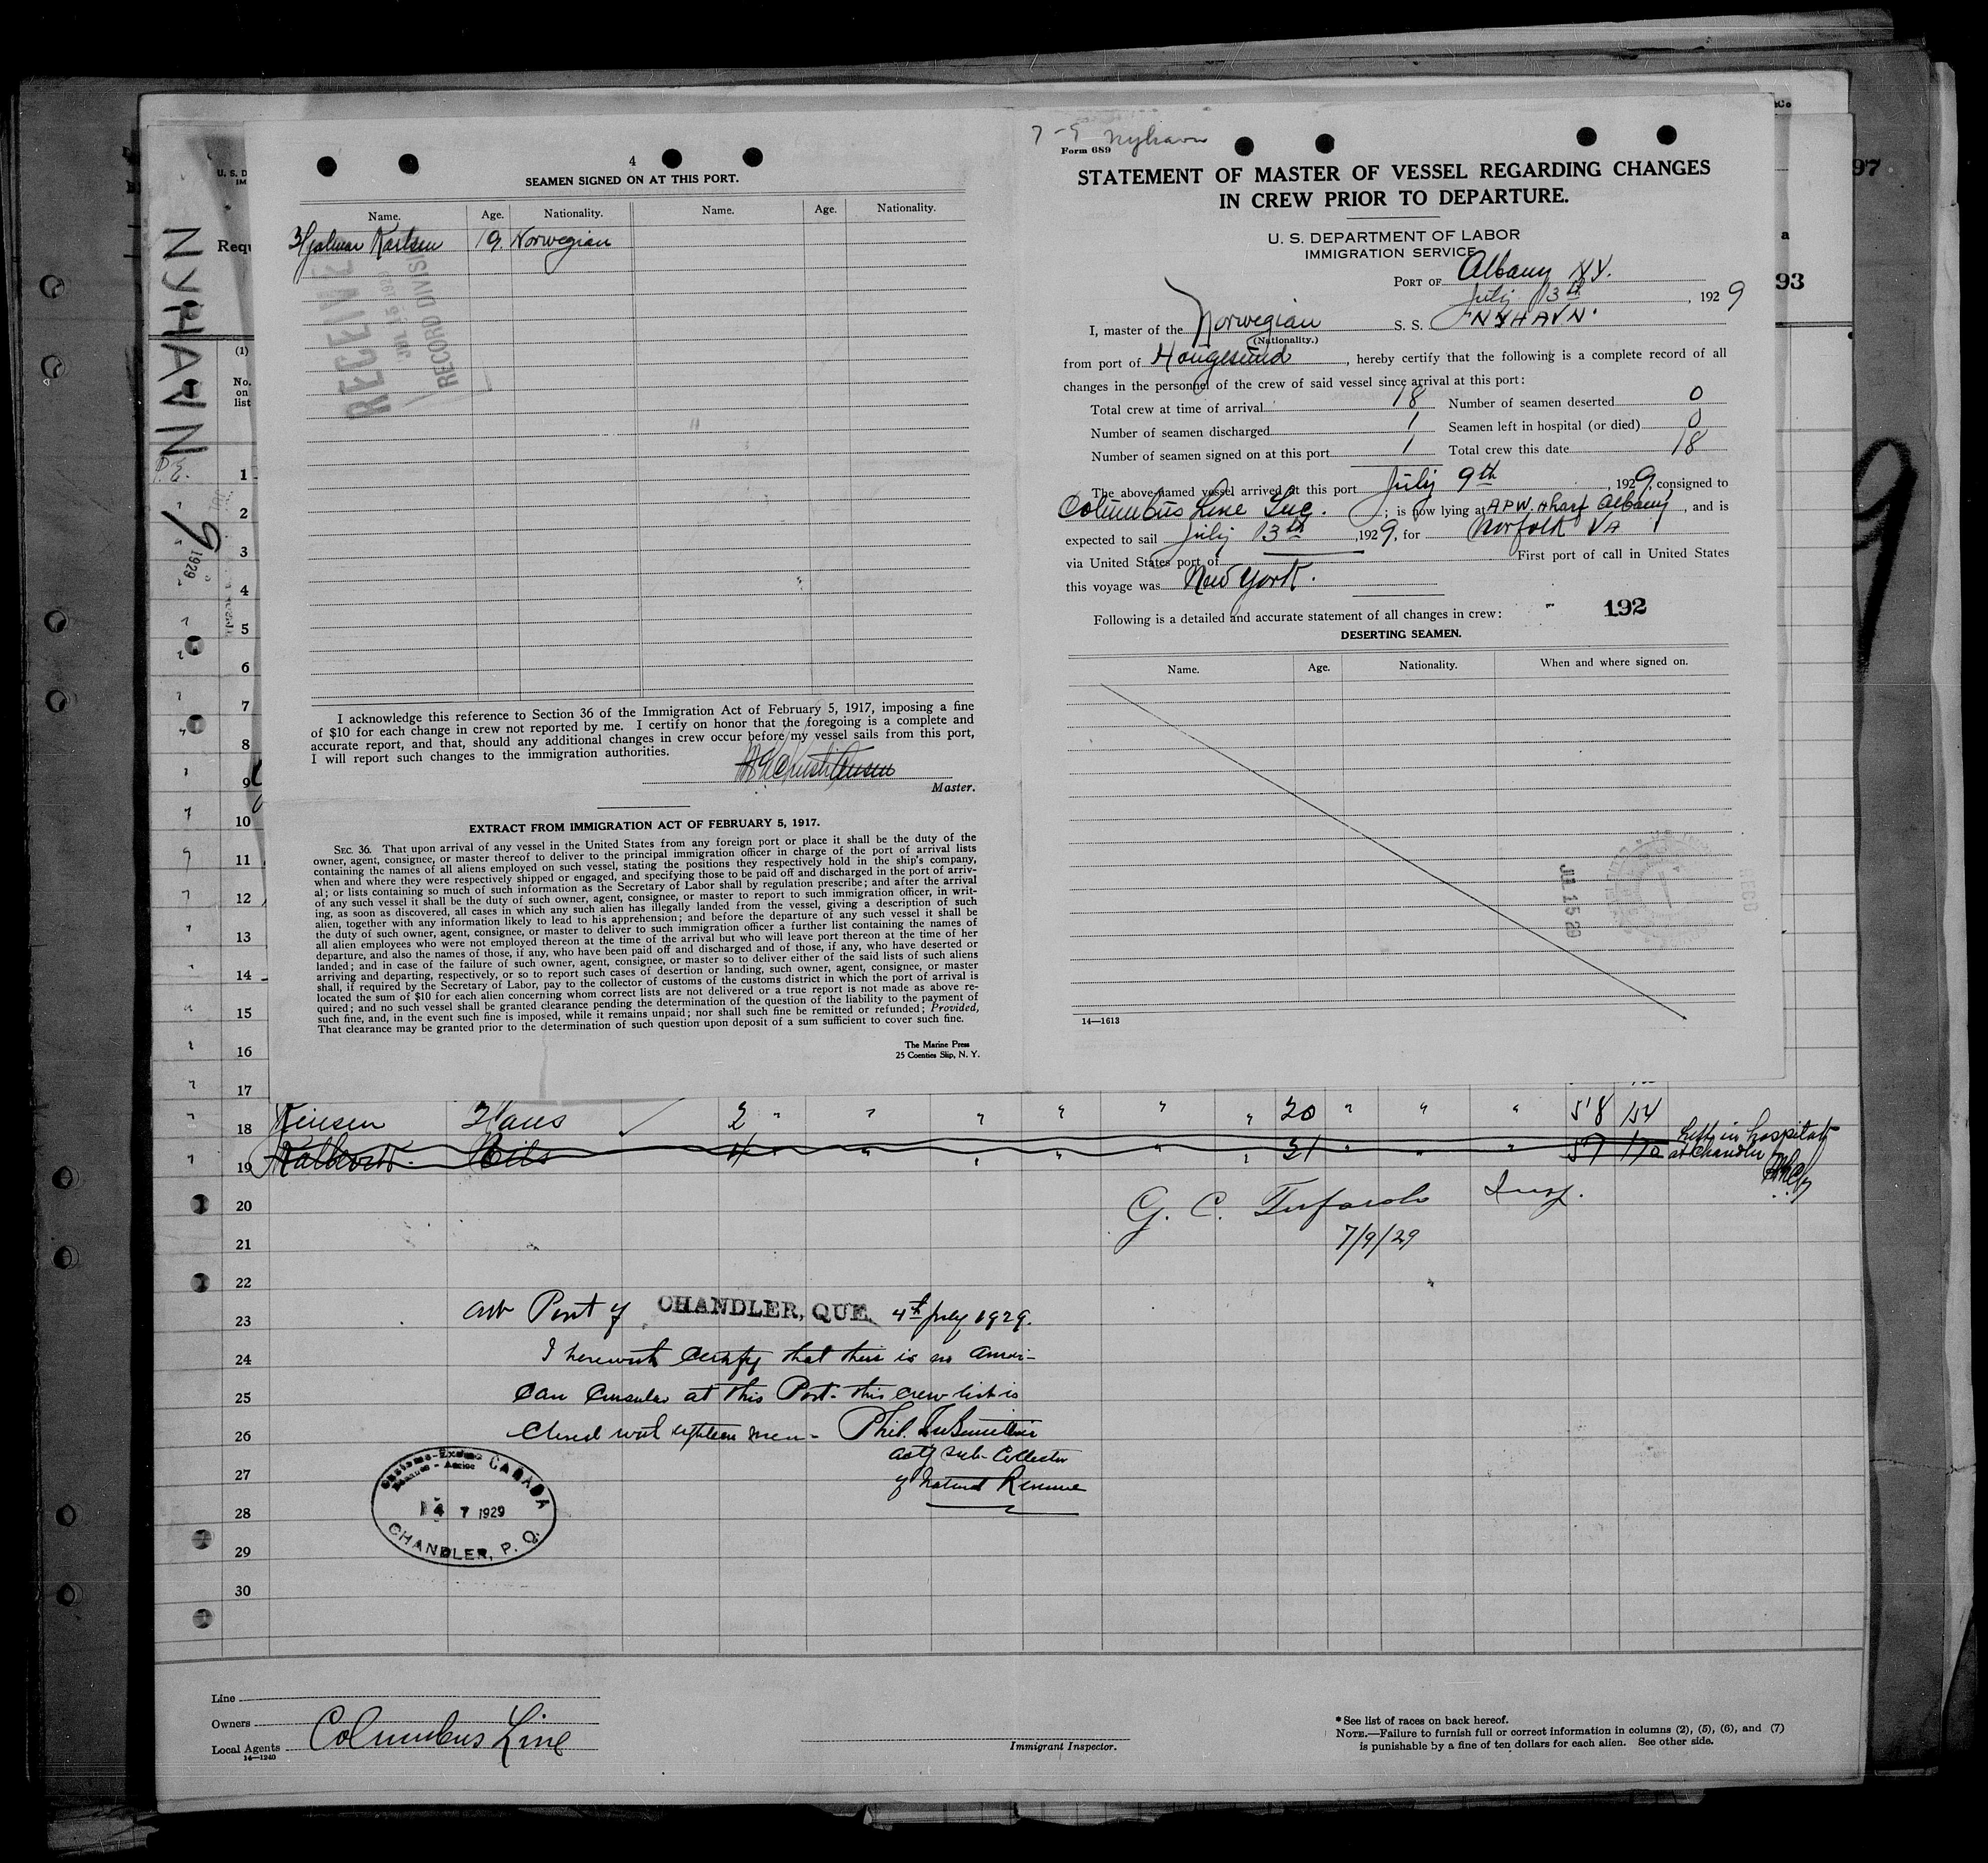 4
SEAMEN SIGNED ON AT THIS PORT.
Name. Age. Nationality. Name. Age. Nationality.
Hjalmar Karlsen 19. Norwegian
RECEIVED
JUL 15 1929
RECORD DIVISI
I acknowledge this reference to Section 36 of the Immigration Act of February 5, 1917, imposing a fine
of $10 for each change in crew not reported by me. I certify on honor that the foregoing is a complete and
accurate report, and that, should any additional changes in crew occur before my vessel sails from this port,
I will report such changes to the immigration authorities.
Master.
EXTRACT FROM IMMIGRATION ACT OF FEBRUARY 5, 1917.
SEC. 36. That upon arrival of any vessel in the United States from any foreign port or place it shall be the duty of the
owner, agent, consignee, or master thereof to deliver to the principal immigration officer in charge of the port of arrival lists
containing the names of all aliens employed on such vessel, stating the positions they respectively hold in the ship's company,
when and where they were respectively shipped or engaged, and specifying those to be paid off and discharged in the port of arriv-
al; or lists containing so much of such information as the Secretary of Labor shall by regulation prescribe; and after the arrival
of any such vessel it shall be the duty of such owner, agent, consignee, or master to report to such immigration officer, in writ-
ing, as soon as discovered, all cases in which any such alien has illegally landed from the vessel, giving a description of such
alien, together with any information likely to lead to his apprehension; and before the departure of any such vessel it shall be
the duty of such owner, agent, consignee, or master to deliver to such immigration officer a further list containing the names of
all alien employees who were not employed thereon at the time of the arrival but who will leave port thereon at the time of her
departure, and also the names of those, if any, who have been paid off and discharged and of those, if any, who have deserted or
landed; and in case of the failure of such owner, agent, consignee, or master so to deliver either of the said lists of such aliens
arriving and departing, respectively, or so to report such cases of desertion or landing, such owner, agent, consignee, or master
shall, if required by the Secretary of Labor, pay to the collector of customs of the customs district in which the port of arrival is
located the sum of $10 for each alien concerning whom correct lists are not delivered or a true report is not made as above re-
quired; and no such vessel shall be granted clearance pending the determination of the question of the liability to the payment of
such fine, and, in the event such fine is imposed, while it remains unpaid; nor shall such fine be remitted or refunded; Provided,
That clearance may be granted prior to the determination of such question upon deposit of a sum sufficient to cover such fine.
The Marine Press
25 Coenties Slip, N. Y.
7-9 Nyhavn
Form 689
STATEMENT OF MASTER OF VESSEL REGARDING CHANGES
IN CREW PRIOR TO DEPARTURE.
U. S. DEPARTMENT OF LABOR
IMMIGRATION SERVICE
PORT OF Albany NY.
July 13th, 1929
I, master of the Norwegian S. S. NYHAVN.
(Nationality.)
from port of Haugesund, hereby certify that the following is a complete record of all
changes in the personnel of the crew of said vessel since arrival at this port:
Total crew at time of arrival 18 Number of seamen deserted 0
Number of seamen discharged 1 Seamen left in hospital (or died) 0
Number of seamen signed on at this port 1 Total crew this date 18
The above-named vessel arrived at this port July 9th, 1929, consigned to
Columbus Line Inc.; is now lying at APW. Wharf Albany, and is
expected to sail July 13th, 1929, for Norfolk VA
via United States port of First port of call in United States
this voyage was New York.
Following is a detailed and accurate statement of all changes in crew: 192
DESERTING SEAMEN.
Name. Age. Nationality. When and where signed on.
JUL 15 29
RECD
14—1613
97
93
a
NYHAVN
9
1929
P.E.
U. S. D
IM
Requ
(1)
No.
on
list
1
2
3
4
5
6
7
8
9
10
11
12
13
14
15
16
17
18 Hans 2 " " " " " " 20 " " " 5'8 154
19 Nils 4 " " " " " " 31 " " " 57 170 Left in hospital
at Chandler
20 G. C. Insp.
21 7/9/29
22
23 Port of CHANDLER, QUE. 4th July 1929.
24 I herewith Certify that there is no Ameri-
25 can Consular at this Port. this crew list is
26 Closed with eighteen men - Phil.
actg Sub-Collector
27 of National Revenue
28
29
30
Customs-Excise CANADA
4 7 1929
CHANDLER, P. Q.
Line
Owners
Local Agents Columbus Line
14—1240
Immigrant Inspector.
* See list of races on back hereof.
NOTE.—Failure to furnish full or correct information in columns (2), (5), (6), and (7)
is punishable by a fine of ten dollars for each alien. See other side.